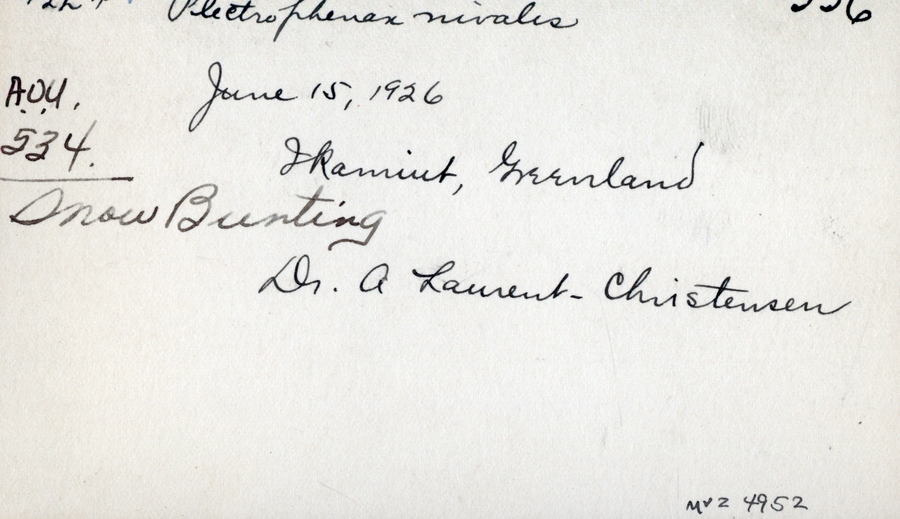 Plectrophenax nivales
June 15, 1926
A.O.U.
534.
Ikamiut, Greenland
Snow Bunting
Dr. A Laurent-Christensen
MVZ 4952